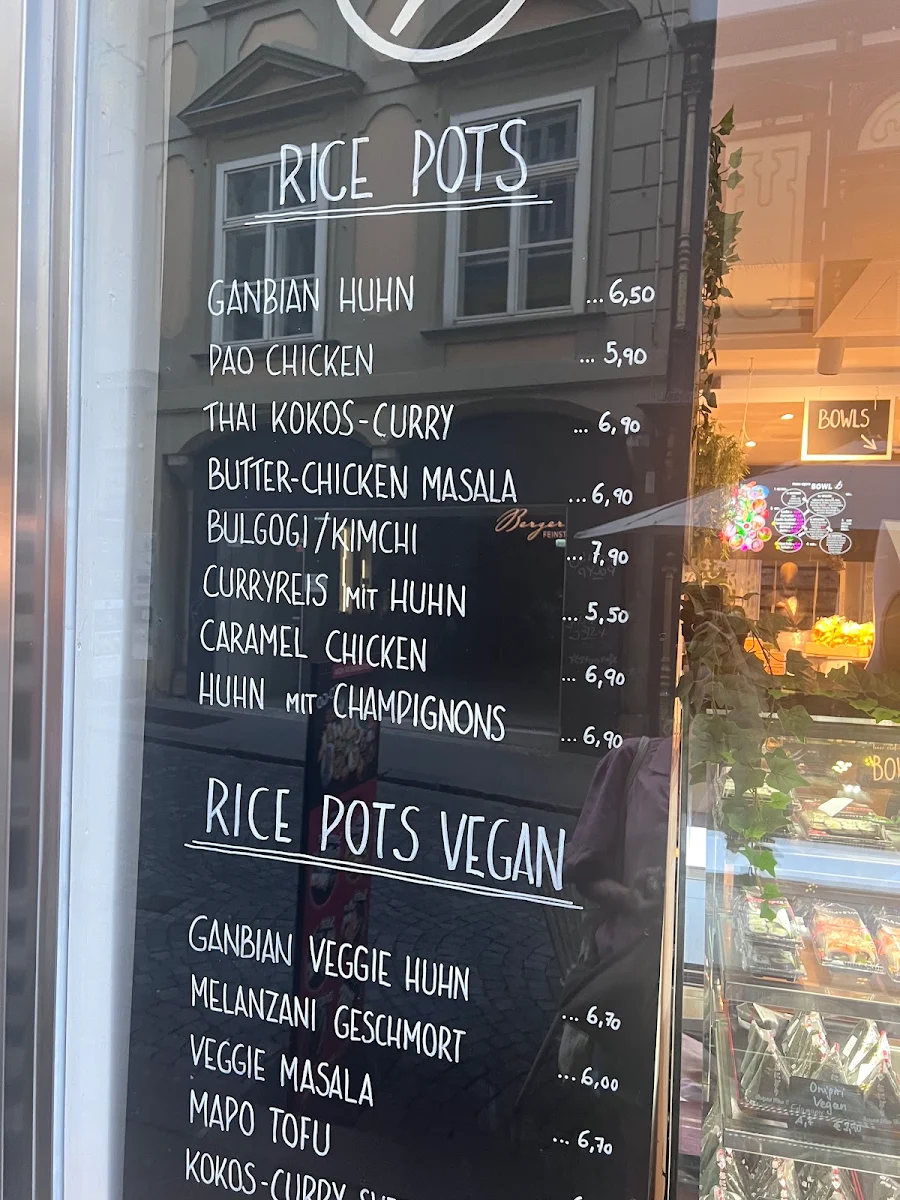 RICE POTS
GANBIAN HUHN ... 6,50
PAO CHICKEN ... 5,90
THAI KOKOS-CURRY ... 6,90
BUTTER-CHICKEN MASALA ... 6,90
BULGOGI/KIMCHI ... 7,90
CURRYREIS MIT HUHN ... 5,50
CARAMEL CHICKEN ... 6,90
HUHN MIT CHAMPIGNONS ... 6,90
RICE POTS VEGAN
GANBIAN VEGGIE HUHN ... 6,70
MELANZANI GESCHMORT ... 6,00
VEGGIE MASALA ... 6,70
MAPO TOFU
KOKOS-CURRY
Berger
FEINST
BOWLS
BOWL
BO
Onigiri
Vegan